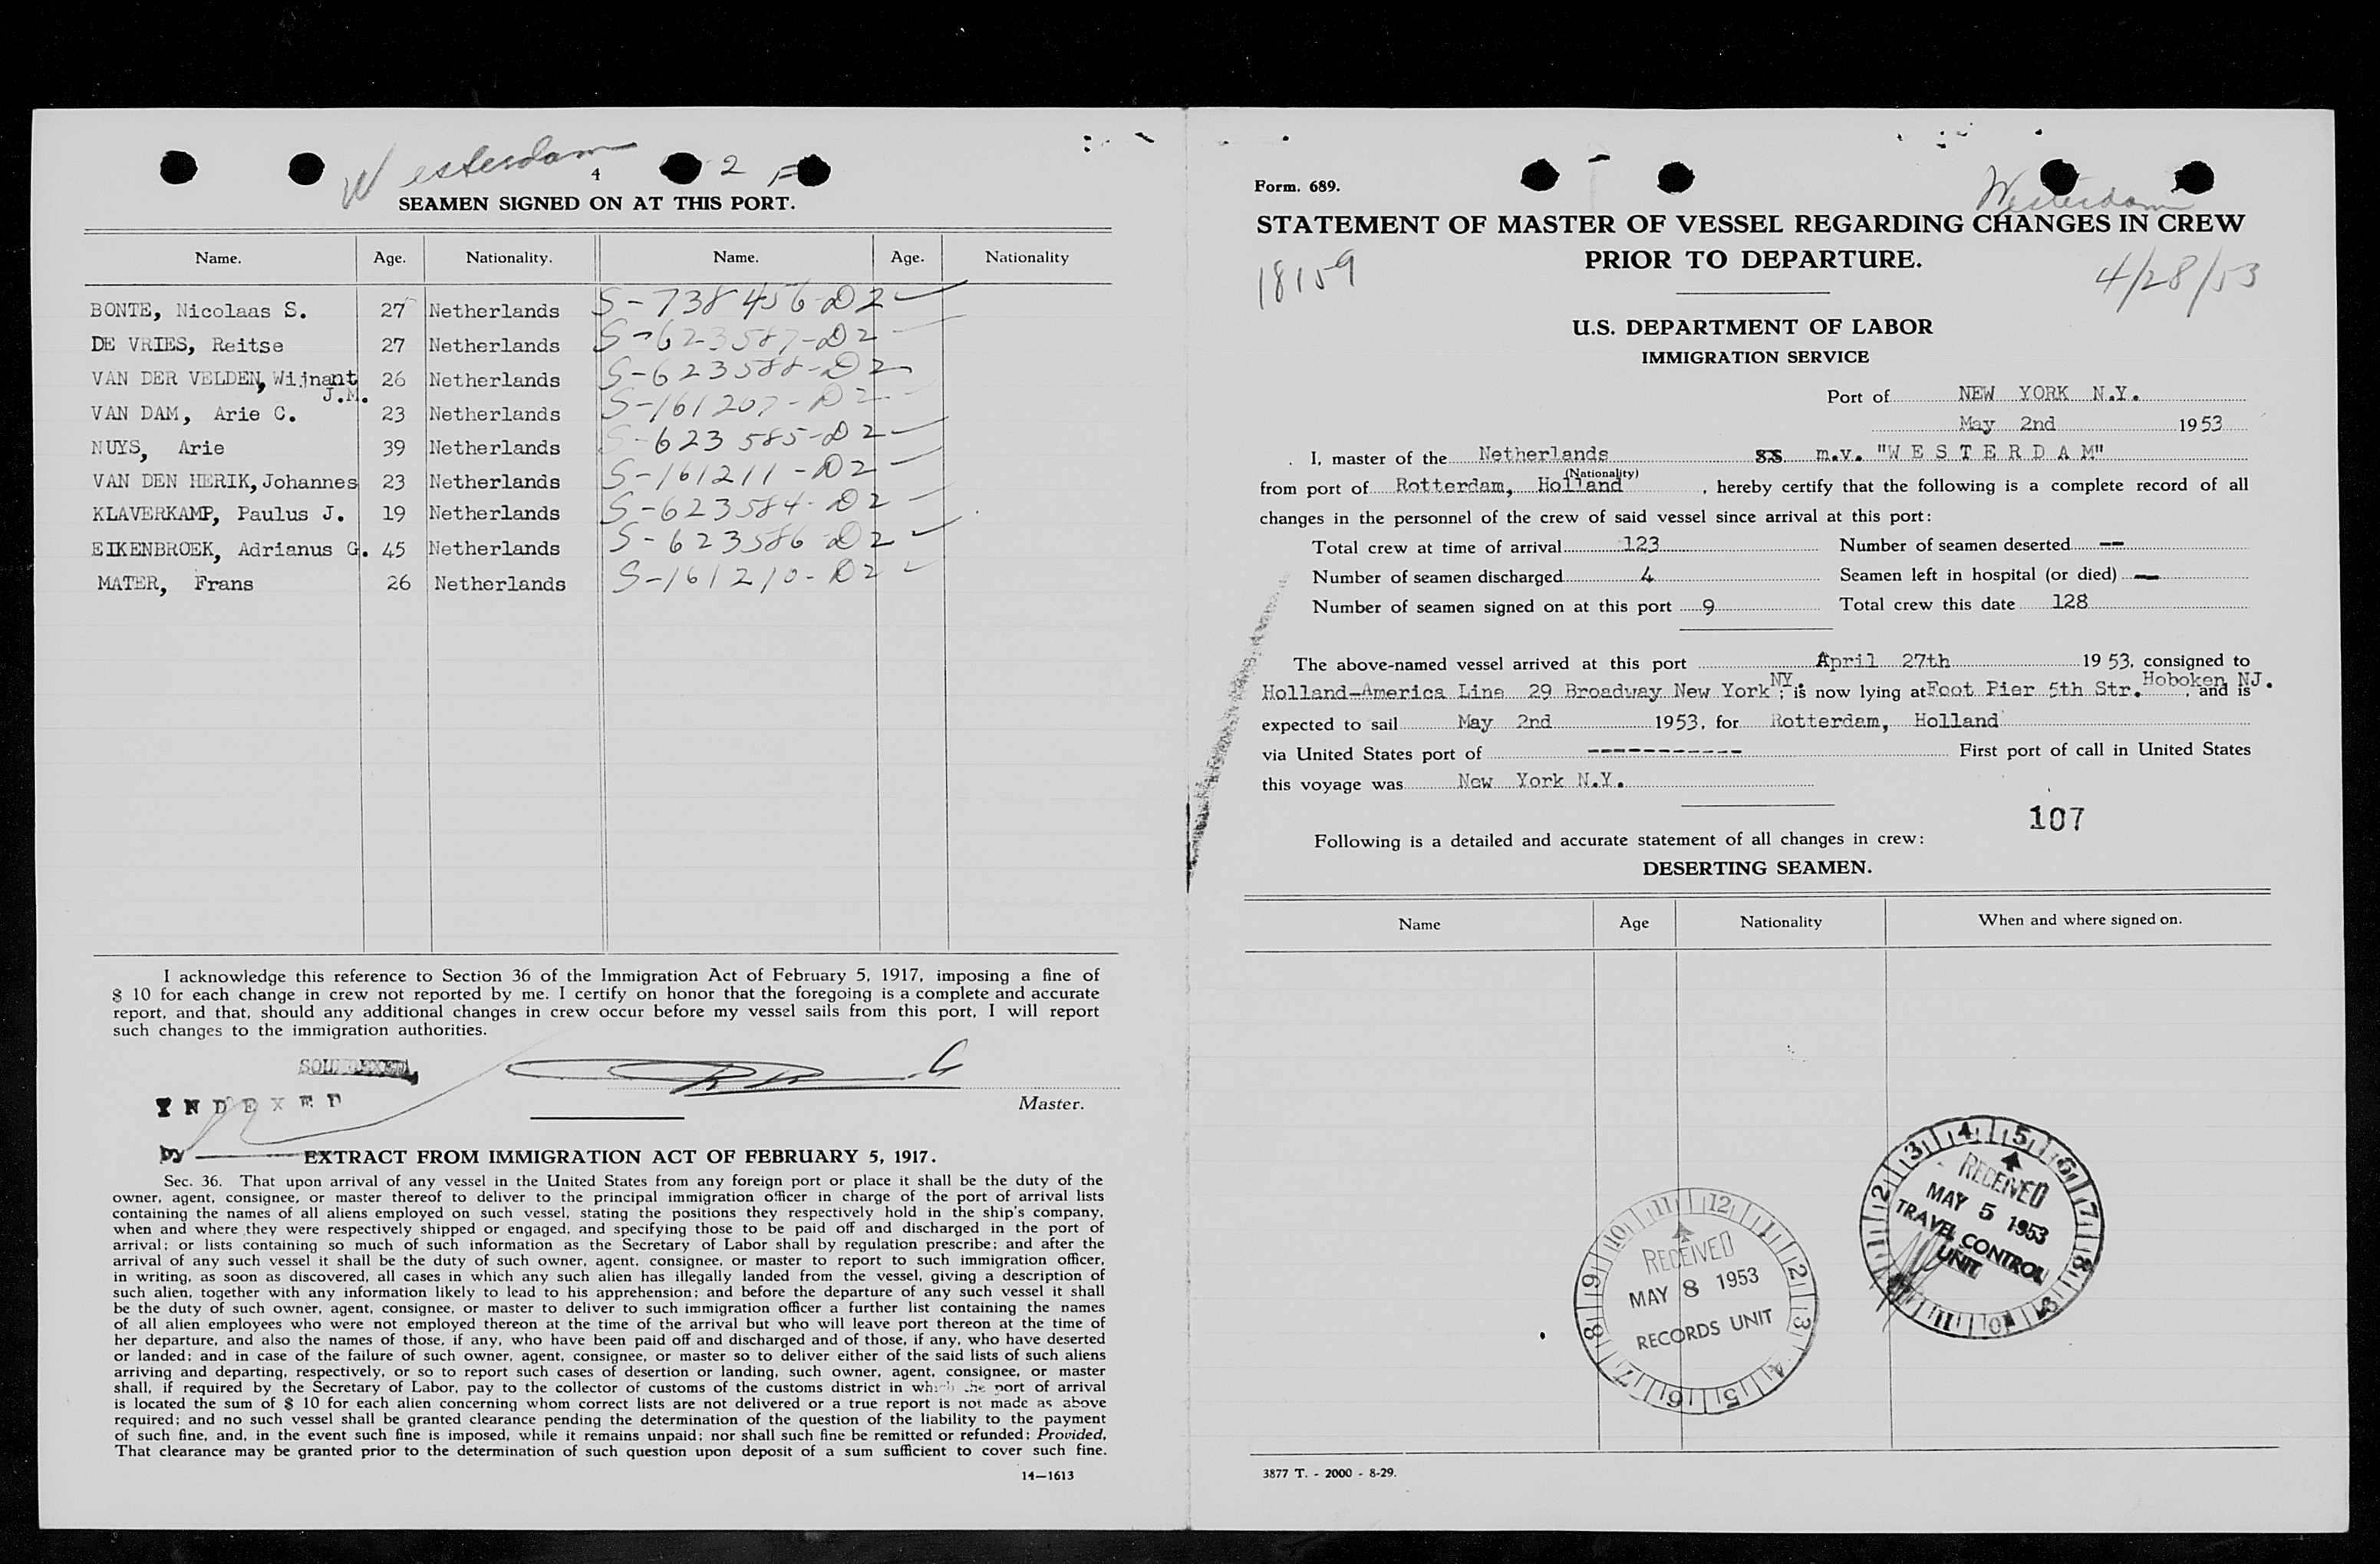 Westerdam 2 F
4
SEAMEN SIGNED ON AT THIS PORT.
Name. Age. Nationality. Name. Age. Nationality
BONTE, Nicolaas S. 27 Netherlands S-738456-D2 ✓
DE VRIES, Reitse 27 Netherlands S-623587-D2
VAN DER VELDEN, Wijnant J.M. 26 Netherlands S-623588-D2
VAN DAM, Arie C. 23 Netherlands S-161207-D2
NUYS, Arie 39 Netherlands S-623585-D2 ✓
VAN DEN HERIK, Johannes 23 Netherlands S-161211-D2 ✓
KLAVERKAMP, Paulus J. 19 Netherlands S-623584-D2
EIKENBROEK, Adrianus G. 45 Netherlands S-623586-D2 ✓
MATER, Frans 26 Netherlands S-161210-D2 ✓
I acknowledge this reference to Section 36 of the Immigration Act of February 5, 1917, imposing a fine of
$ 10 for each change in crew not reported by me. I certify on honor that the foregoing is a complete and accurate
report, and that, should any additional changes in crew occur before my vessel sails from this port, I will report
such changes to the immigration authorities.
INDEXED
Master.
BY
EXTRACT FROM IMMIGRATION ACT OF FEBRUARY 5, 1917.
Sec. 36. That upon arrival of any vessel in the United States from any foreign port or place it shall be the duty of the
owner, agent, consignee, or master thereof to deliver to the principal immigration officer in charge of the port of arrival lists
containing the names of all aliens employed on such vessel, stating the positions they respectively hold in the ship's company,
when and where they were respectively shipped or engaged, and specifying those to be paid off and discharged in the port of
arrival; or lists containing so much of such information as the Secretary of Labor shall by regulation prescribe; and after the
arrival of any such vessel it shall be the duty of such owner, agent, consignee, or master to report to such immigration officer,
in writing, as soon as discovered, all cases in which any such alien has illegally landed from the vessel, giving a description of
such alien, together with any information likely to lead to his apprehension; and before the departure of any such vessel it shall
be the duty of such owner, agent, consignee, or master to deliver to such immigration officer a further list containing the names
of all alien employees who were not employed thereon at the time of the arrival but who will leave port thereon at the time of
her departure, and also the names of those, if any, who have been paid off and discharged and of those, if any, who have deserted
or landed; and in case of the failure of such owner, agent, consignee, or master so to deliver either of the said lists of such aliens
arriving and departing, respectively, or so to report such cases of desertion or landing, such owner, agent, consignee, or master
shall, if required by the Secretary of Labor, pay to the collector of customs of the customs district in which the port of arrival
is located the sum of $ 10 for each alien concerning whom correct lists are not delivered or a true report is not made as above
required; and no such vessel shall be granted clearance pending the determination of the question of the liability to the payment
of such fine, and, in the event such fine is imposed, while it remains unpaid; nor shall such fine be remitted or refunded: Provided,
That clearance may be granted prior to the determination of such question upon deposit of a sum sufficient to cover such fine.
14—1613
Form. 689.
Westerdam
STATEMENT OF MASTER OF VESSEL REGARDING CHANGES IN CREW
PRIOR TO DEPARTURE.
18159
4/28/53
U.S. DEPARTMENT OF LABOR
IMMIGRATION SERVICE
Port of NEW YORK N.Y.
May 2nd 1953
I, master of the Netherlands SS m.v. "W E S T E R D A M"
(Nationality)
from port of Rotterdam, Holland, hereby certify that the following is a complete record of all
changes in the personnel of the crew of said vessel since arrival at this port:
Total crew at time of arrival 123 Number of seamen deserted --
Number of seamen discharged 4 Seamen left in hospital (or died) --
Number of seamen signed on at this port 9 Total crew this date 128
The above-named vessel arrived at this port April 27th 1953, consigned to
Holland-America Line 29 Broadway New York NY.; is now lying at Foot Pier 5th Str. Hoboken NJ., and is
expected to sail May 2nd 1953, for Rotterdam, Holland
via United States port of ----------- First port of call in United States
this voyage was New York N.Y.
107
Following is a detailed and accurate statement of all changes in crew:
DESERTING SEAMEN.
Name Age Nationality When and where signed on.
RECEIVED
MAY 5 1953
TRAVEL CONTROL
UNIT
1 2 3 4 5 6 7 8 9 10 11 12
RECEIVED
MAY 8 1953
RECORDS UNIT
3877 T. - 2000 - 8-29.